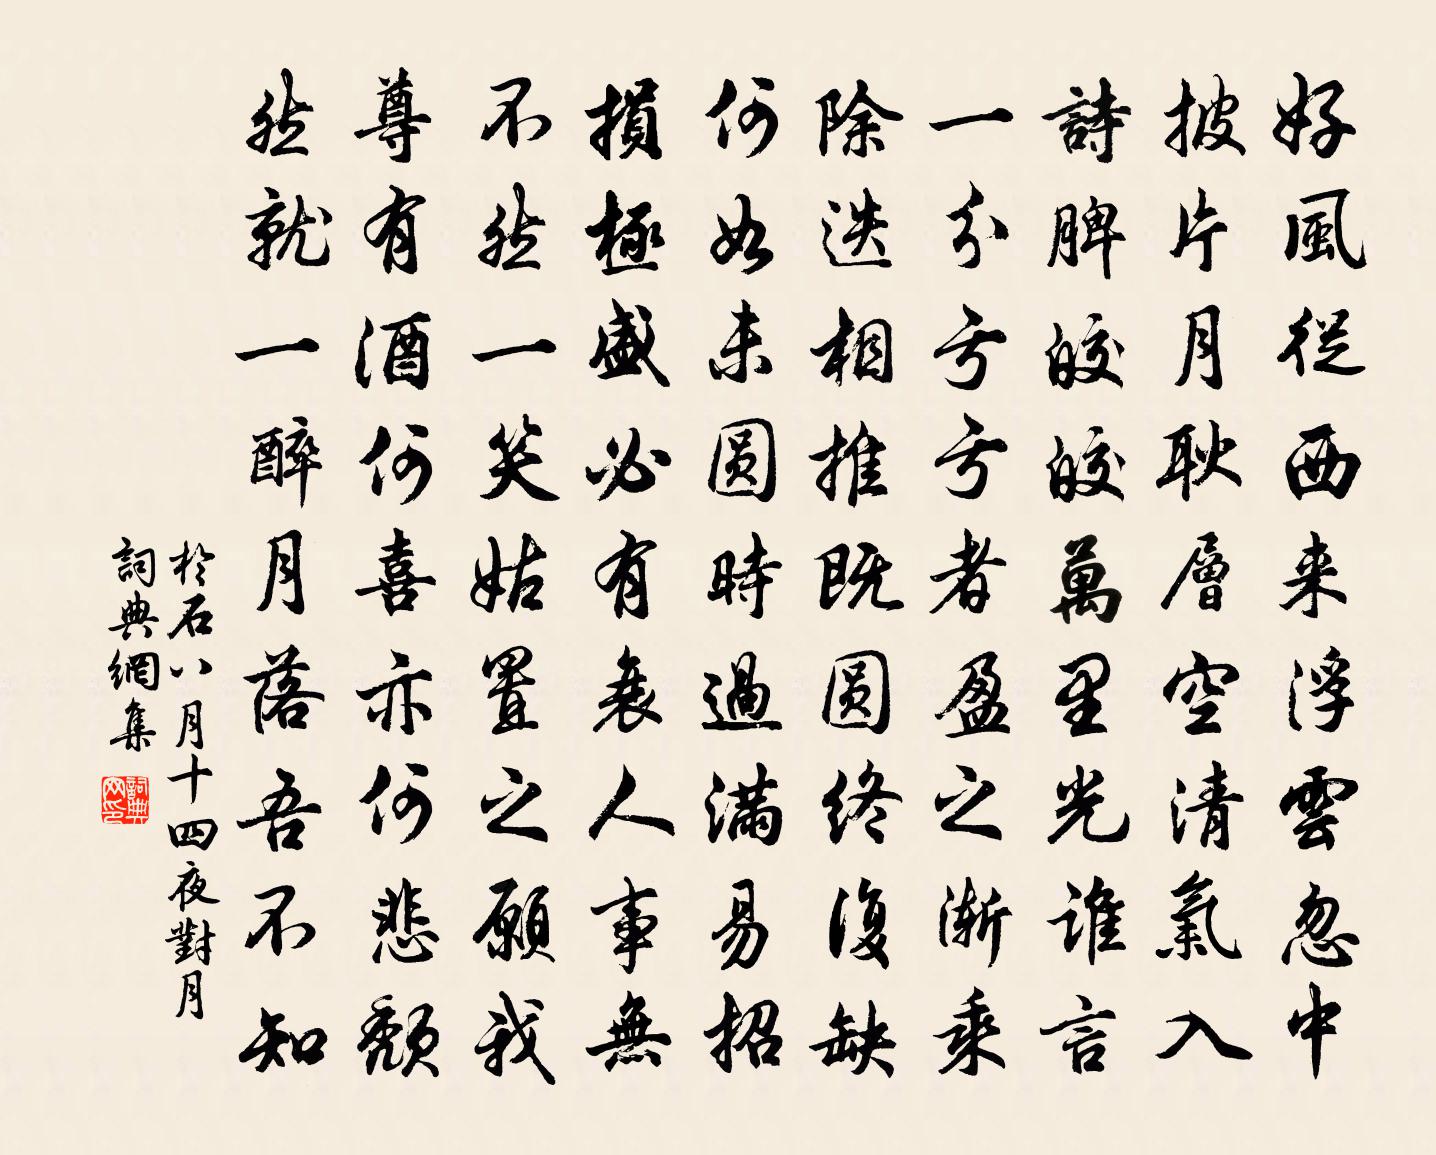 好風從西来浮雲忽中
披片月耿層空清氣入
詩脾皎皎萬里光誰言
一分亏亏者盈之漸乘
除迭相推既圆終復缺
何如未圓時過滿易招
損極盛必有衰人事無
不然一笑姑置之願我
尊有酒何喜亦何悲頹
然就一醉月落吾不知
於石八月十四夜對月
詞典網集
詞典
网印